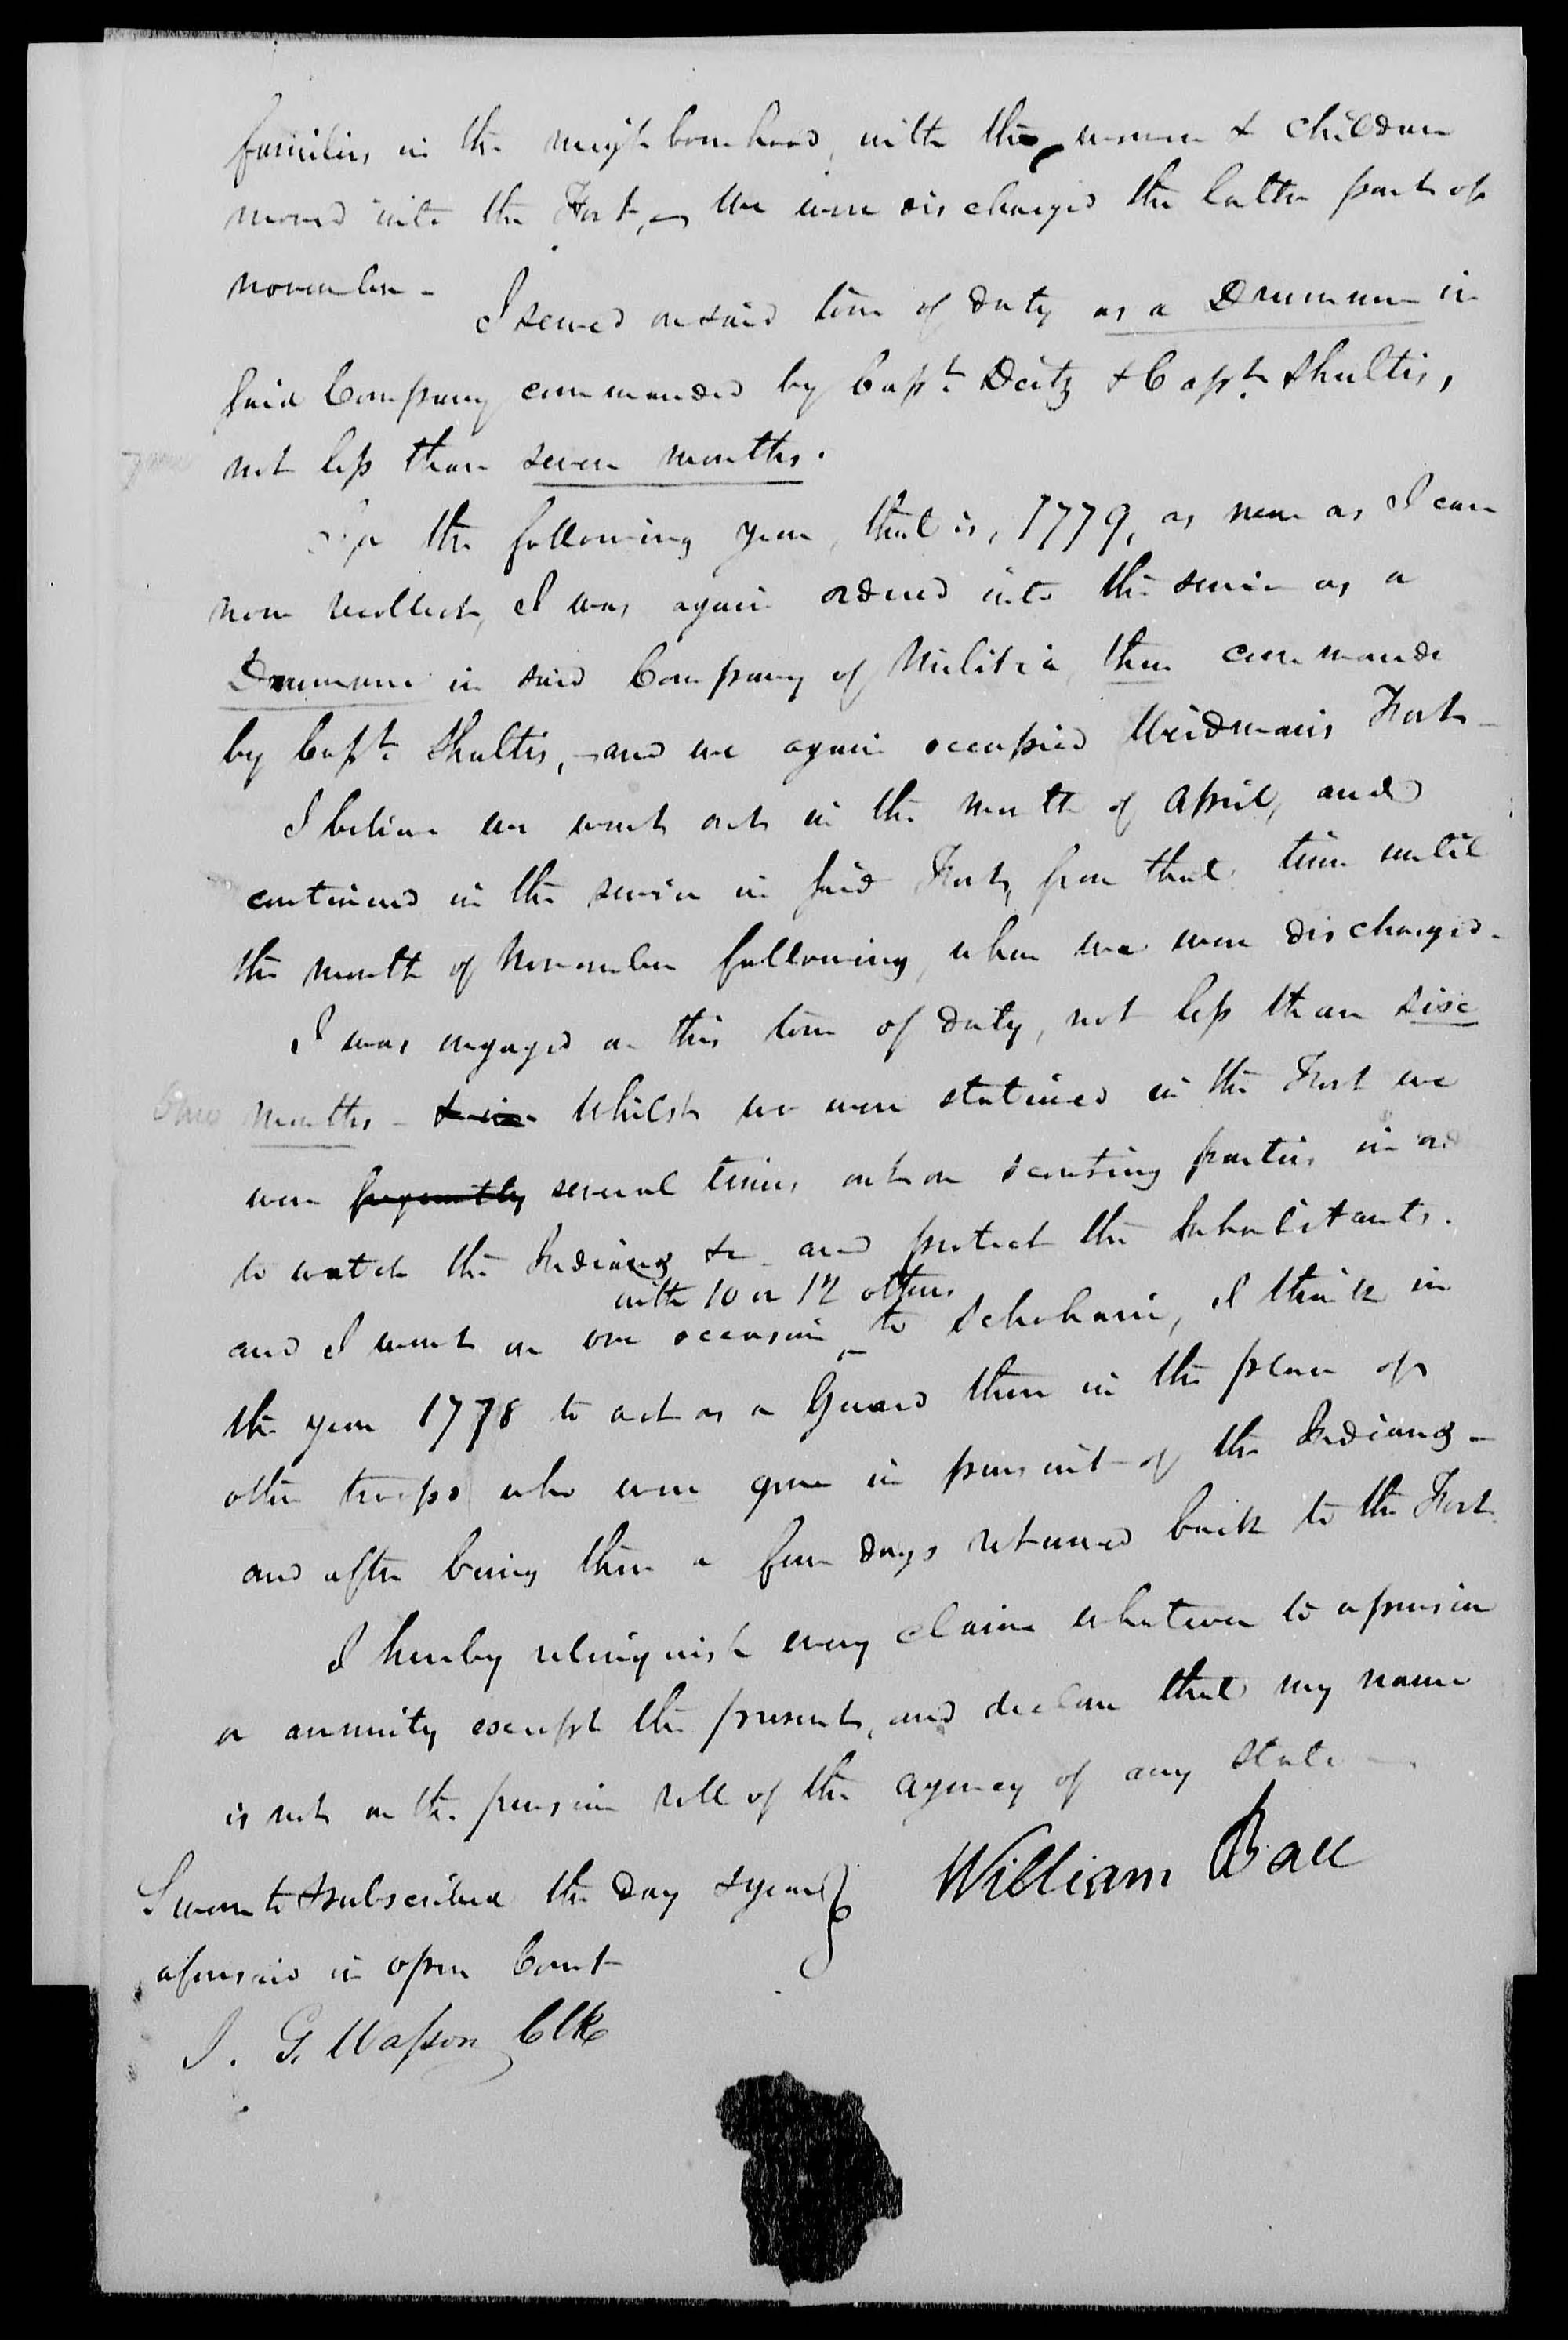 families in the neighbourhood, with the women & children
moved into the Fort, & we were discharged the latter part of
November -
I served on said tour of duty as a Drummer in
said Company commanded by Capt. Deitz & Capt. Shultis,
not less than seven months.
7 mos
In the following year, that is, 1779, as near as I can
now recollect, I was again ordered into the service as a
Drummer in said Company of Militia, then commande
by Capt. Shultis, - and we again occupied Weidmans Fort -
I believe we went out in the month of April, and
continued in the service in said Fort, from that time until
the month of November following, when we were discharged -
I was engaged on this tour of duty, not less than six
6 mos
months - Whilst we were stationed in the Fort we
were frequently several times out on scouting parties in
to watch the Indians &c and protect the Inhabitants.
with 10 or 12 others
and I went on one occasion ^ to Schoharie, I think in
the year 1778 to act as a Guard there in the place of
other troops who were gone in pursuit of the Indians -
and after being there a few days returned back to the Fort.
I hereby relinquish every claim whatever to a pension
or annuity except the present, and declare that my name
is not on the pension roll of the agency of any state -
Sworn to & subscribed the day & year }
William Ball
aforesaid in open Court
J. G. Wasson Clk